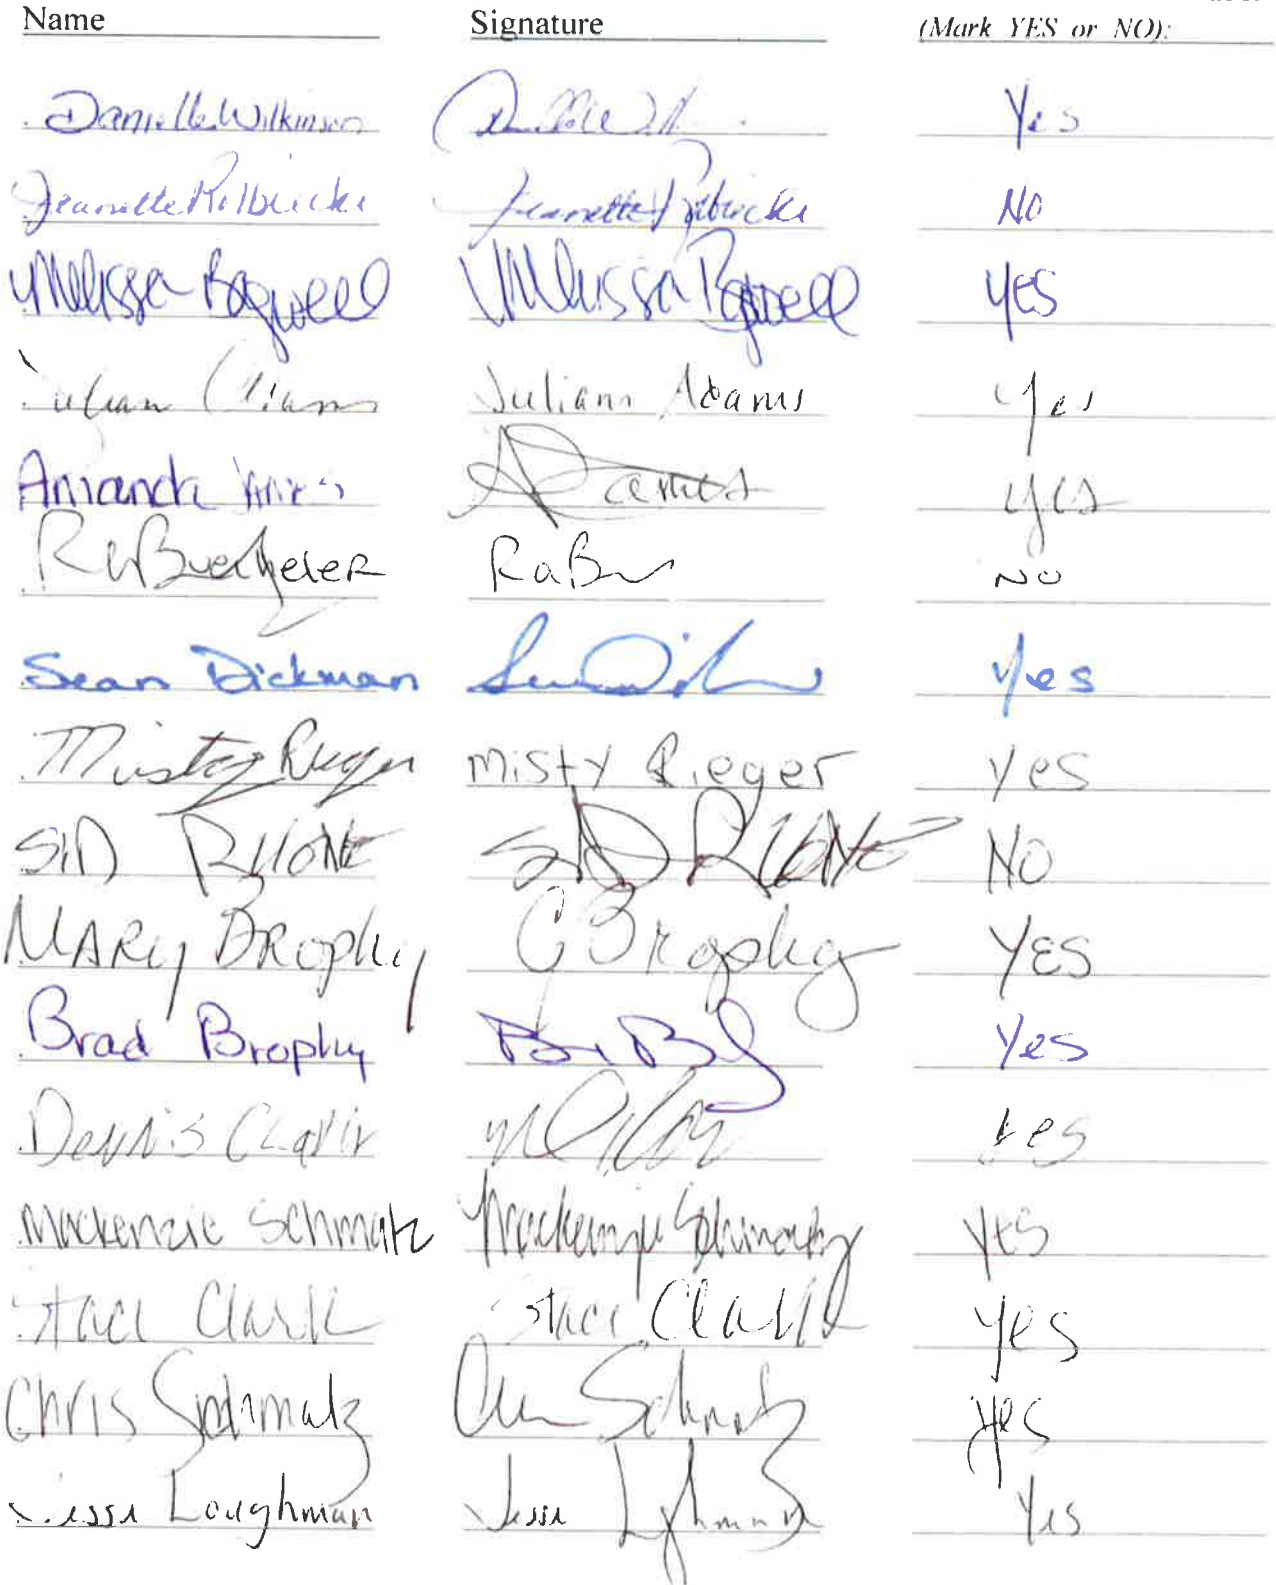 Name Signature (Mark YES or NO):
Danielle Wilkinson Yes
Jeanette Jeanette NO
Melissa Bagwell Melissa Bagwell YES
Juliann Adams Yes
Amanda yes
Buegheler RaB NO
Sean Dickman Yes
Misty Rieger Misty Rieger Yes
SID RHONE SID RHONE NO
MARY BROphy C Brophy YES
Brad Brophy Yes
Dennis yes
Mackenzie Schmatz Mackenzie Schmatz yes
Staci Clark Staci Clark yes
Chris Schmatz Schmatz yes
Jesse Loughman Jesse Yes